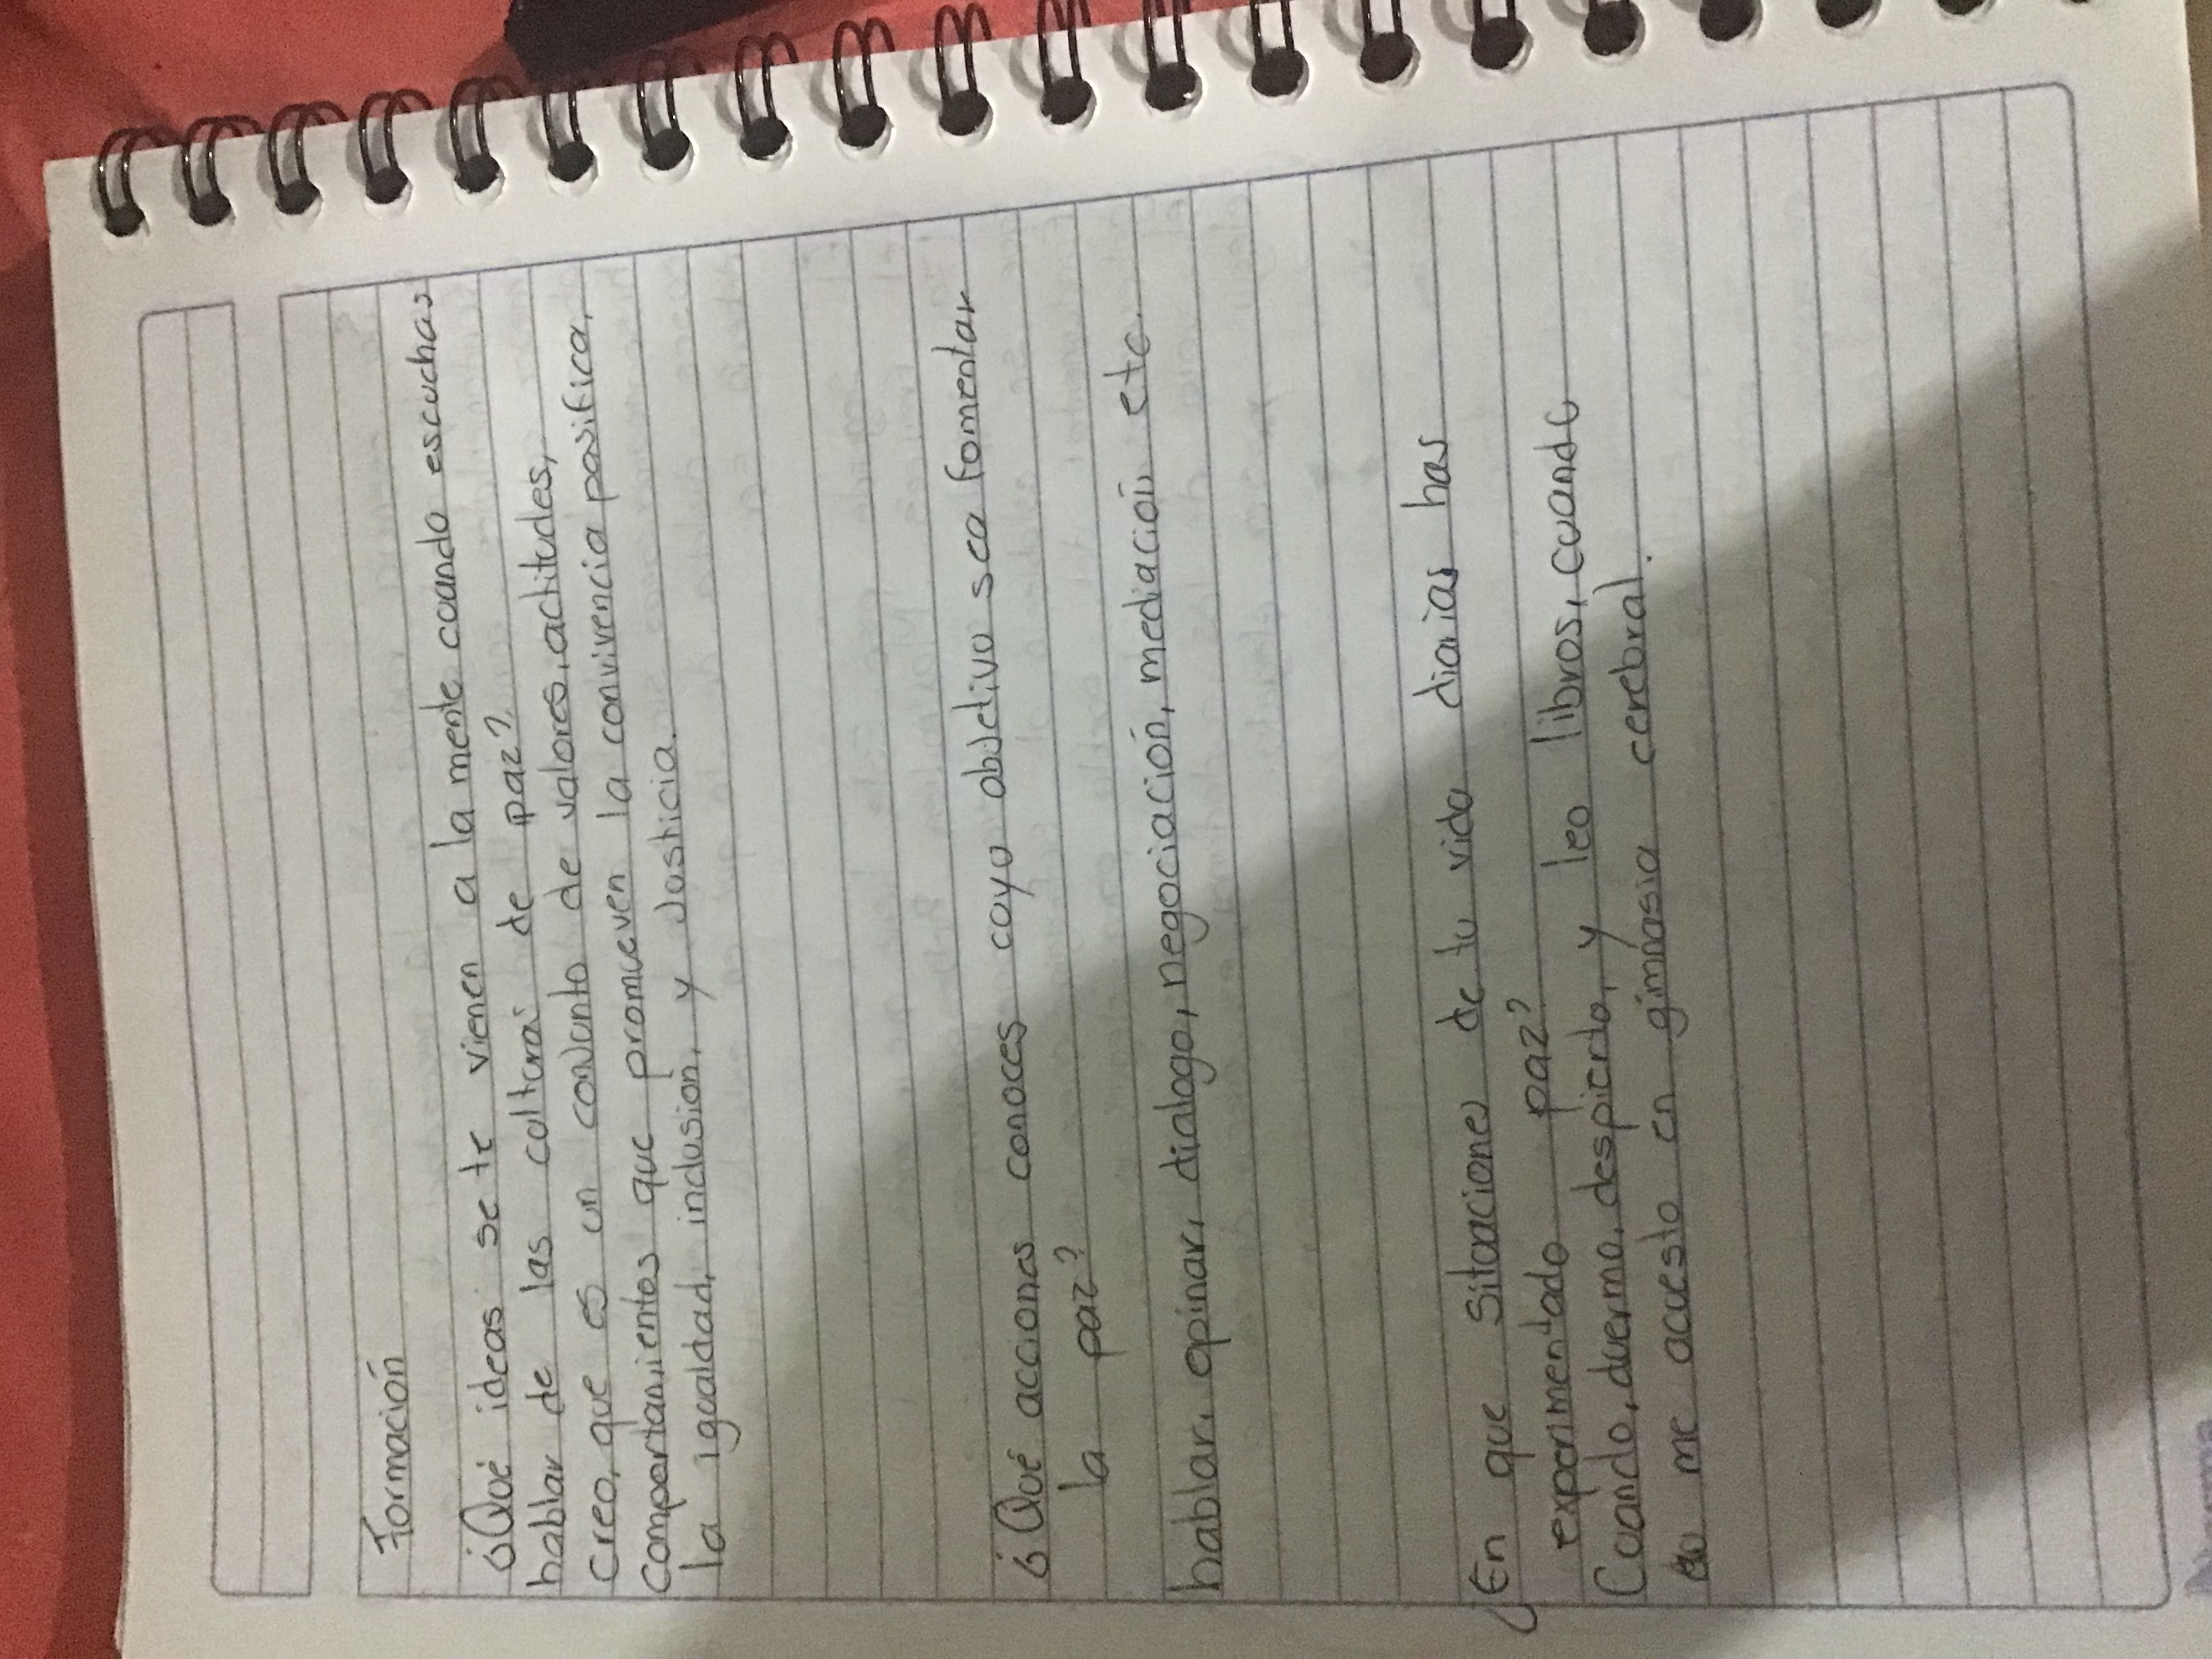 Formación
¿Qué ideas se te vienen a la mente cuando escuchas
hablar de las culturas de paz?
Creo, que es un conjunto de valores, actitudes,
comportamientos que promueven la convivencia pasifica,
la igualdad, inclusion, y Justicia.
¿Qué acciones conoces cuyo objetivo sea fomentar
la paz?
hablar, opinar, dialogo, negociación, mediación etc.
¿En que situaciones de tu vida diarias has
experimentado paz?
Cuando, duermo, despierto, y leo libros, cuando
me acuesto en gimnasia cerebral.